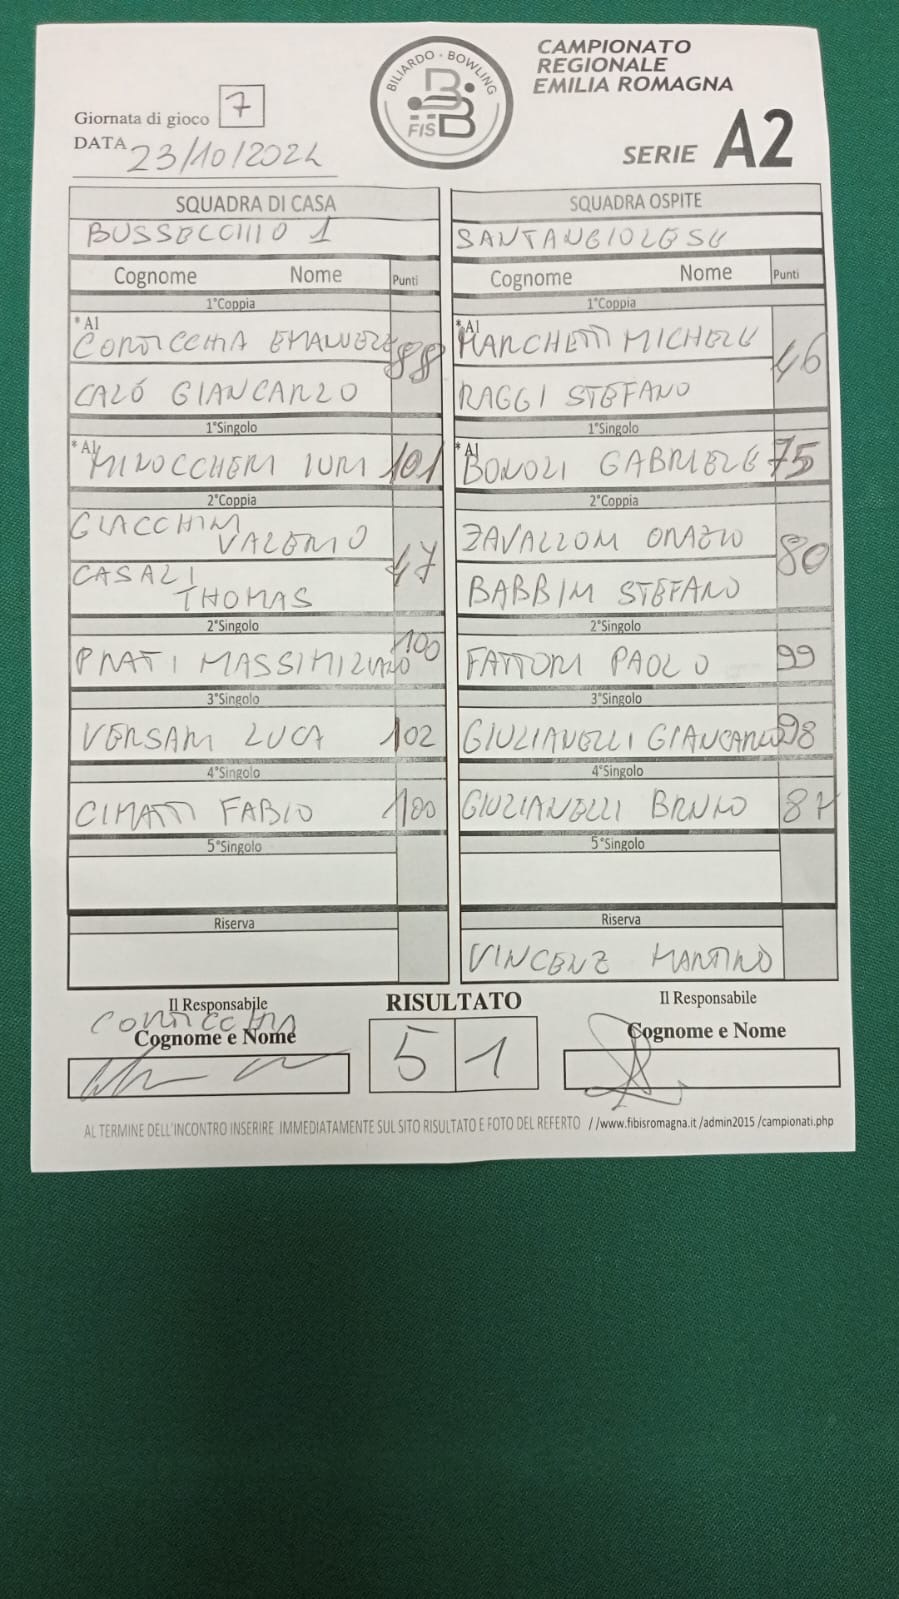 CAMPIONATO
REGIONALE
EMILIA ROMAGNA
SERIE A2
BILIARDO · BOWLING
FISBB
Giornata di gioco 7
DATA 23/10/2024
SQUADRA DI CASA
BUSSECCHIO 1
Cognome Nome Punti
1°Coppia
*Al
CORTICCHIA EMANUELE 88
CALÓ GIANCARLO
1°Singolo
*Al
MINOCCHERI IURI 101
2°Coppia
GIACCHINI
VALERIO 47
CASALI
THOMAS
2°Singolo
PRATI MASSIMILIANO 100
3°Singolo
VERSARI LUCA 102
4°Singolo
CIMATTI FABIO 100
5°Singolo
Riserva
SQUADRA OSPITE
SANTANGIOLESE
Cognome Nome Punti
1°Coppia
*Al
MARCHETTI MICHELE 46
RAGGI STEFANO
1°Singolo
*Al
BONOLI GABRIELE 75
2°Coppia
ZAVALLONI ORAZIO 80
BABBINI STEFANO
2°Singolo
FATTORI PAOLO 99
3°Singolo
GIULIANELLI GIANCARLO 98
4°Singolo
GIULIANELLI BRUNO 87
5°Singolo
Riserva
VINCENZ MARTINO
Il Responsabile
CORTICCHIA
Cognome e Nome
RISULTATO
5 1
Il Responsabile
Cognome e Nome
AL TERMINE DELL'INCONTRO INSERIRE IMMEDIATAMENTE SUL SITO RISULTATO E FOTO DEL REFERTO //www.fibisromagna.it /admin2015 /campionati.php